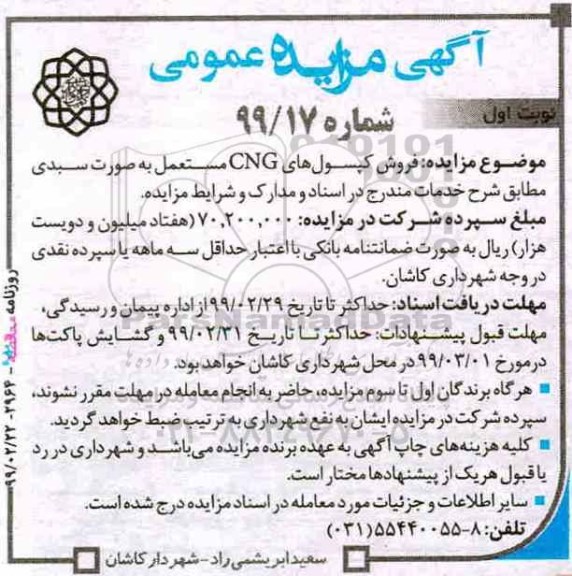 آگهی مزایده عمومی
نوبت اول
شماره ۹۹/۱۷
موضوع مزایده: فروش کپسول‌های CNG مستعمل به صورت سبدی
مطابق شرح خدمات مندرج در اسناد و مدارک و شرایط مزایده.
مبلغ سپرده شرکت در مزایده: ۷۰,۲۰۰,۰۰۰ (هفتاد میلیون و دویست
هزار) ریال به صورت ضمانتنامه بانکی با اعتبار حداقل سه ماهه یا سپرده نقدی
در وجه شهرداری کاشان.
مهلت دریافت اسناد: حداکثر تا تاریخ ۹۹/۰۲/۲۹ از اداره پیمان و رسیدگی،
مهلت قبول پیشنهادات: حداکثر تا تاریخ ۹۹/۰۲/۳۱ و گشایش پاکت‌ها
در مورخ ۹۹/۰۳/۰۱ در محل شهرداری کاشان خواهد بود.
هرگاه برندگان اول تا سوم مزایده، حاضر به انجام معامله در مهلت مقرر نشوند،
سپرده شرکت در مزایده ایشان به نفع شهرداری به ترتیب ضبط خواهد گردید.
کلیه هزینه‌های چاپ آگهی به عهده برنده مزایده می‌باشد و شهرداری در رد
یا قبول هر یک از پیشنهادها مختار است.
سایر اطلاعات و جزئیات مورد معامله در اسناد مزایده درج شده است.
تلفن: ۸-۵۵۴۴۰۰۵۵ (۰۳۱)
سعید ابریشمی راد - شهردار کاشان
روزنامه - ۲۹۶۴ - ۹۹/۰۲/۲۲
ParsNamadData
۰۲۱-۸۸۳۴۹۶۷۰-۵